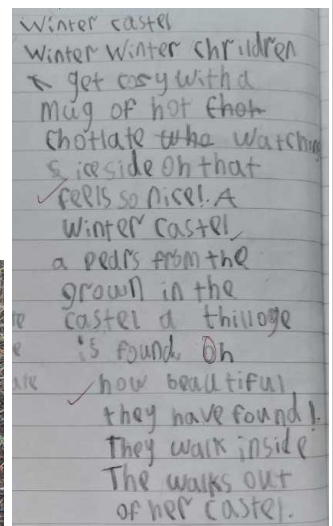 Winter castel
Winter Winter chrildren
get cosy with a
mug of hot chor
chotlate who watching
s iceside oh that
feels so nice!. A
winter castel
a pears from the
grown in the
castel a thilloge
is found. Oh
how beautiful
they have found!.
They walk inside
The walks out
of her castel.